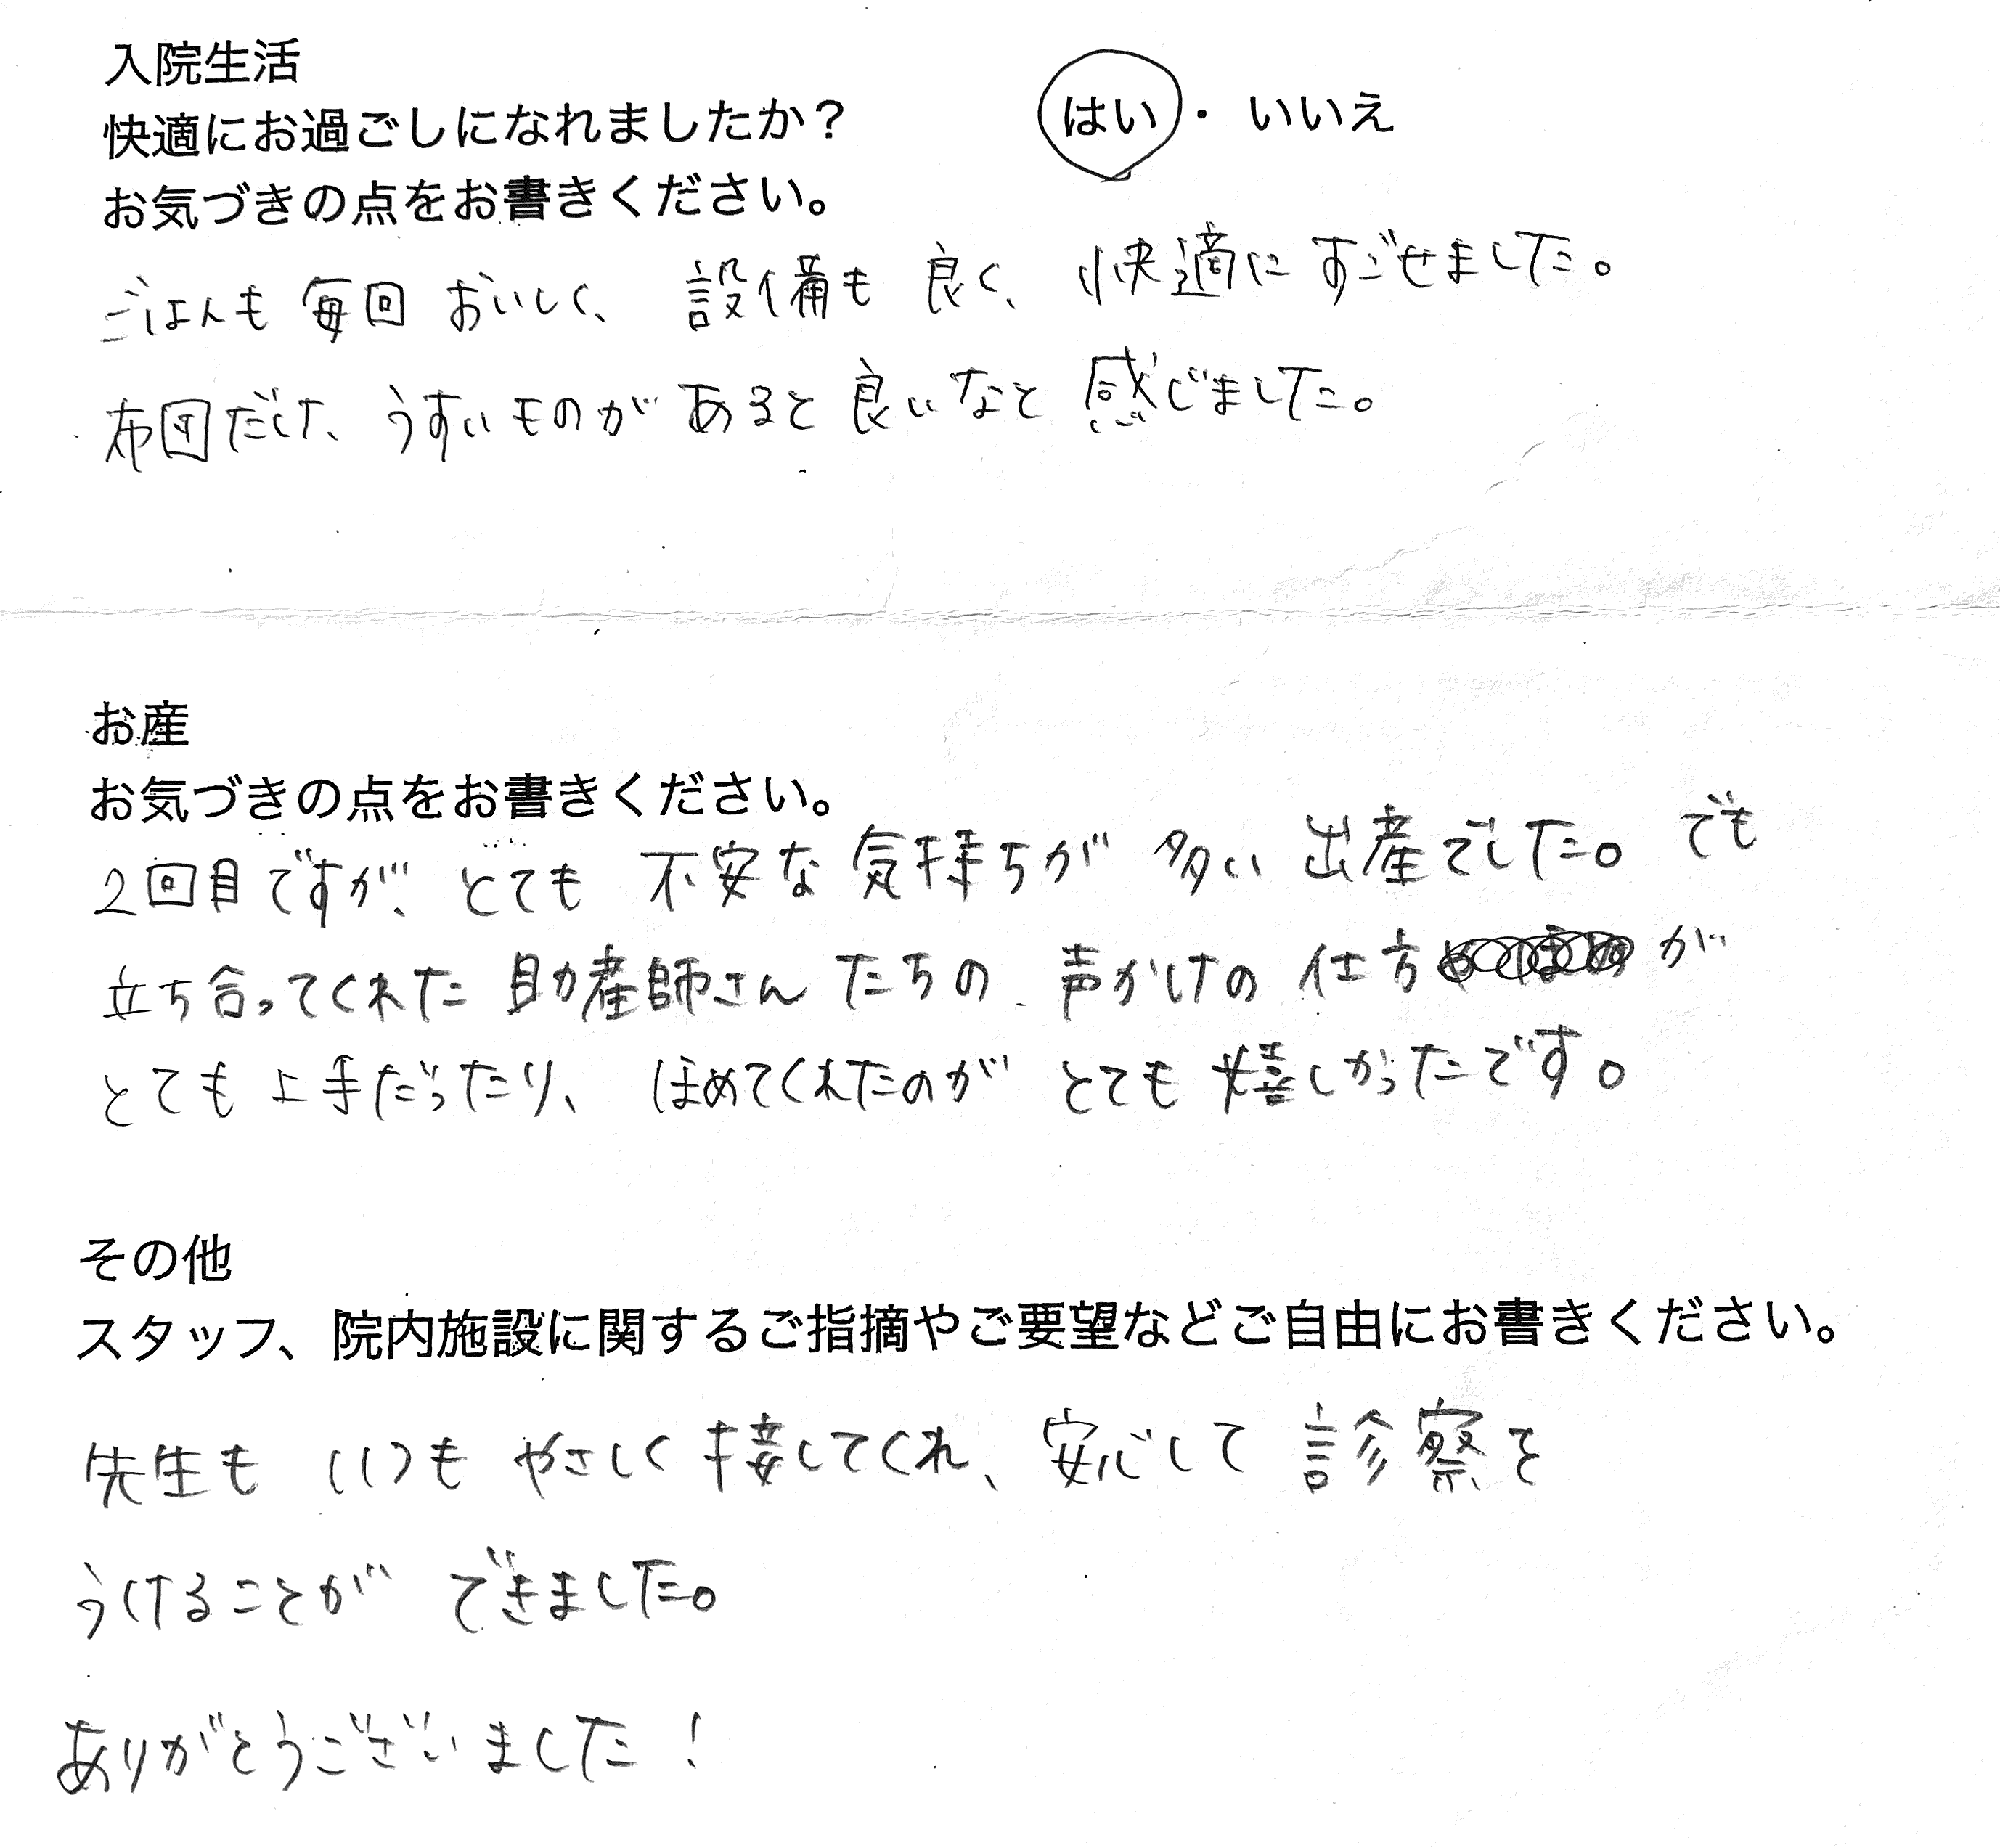 入院生活
快適にお過ごしになれましたか？ はい・いいえ
お気づきの点をお書きください。
ごはんも毎回おいしく、設備も良く、快適にすごせました。
布団だけ、うすいものがあると良いなと感じました。
お産
お気づきの点をお書きください。
2回目ですが、とても不安な気持ちが多い出産でした。でも
立ち合ってくれた助産師さんたちの、声かけの仕方が
とても上手だったり、ほめてくれたのがとても嬉しかったです。
その他
スタッフ、院内施設に関するご指摘やご要望などご自由にお書きください。
先生もいつもやさしく接してくれ、安心して診察を
うけることができました。
ありがとうございました！